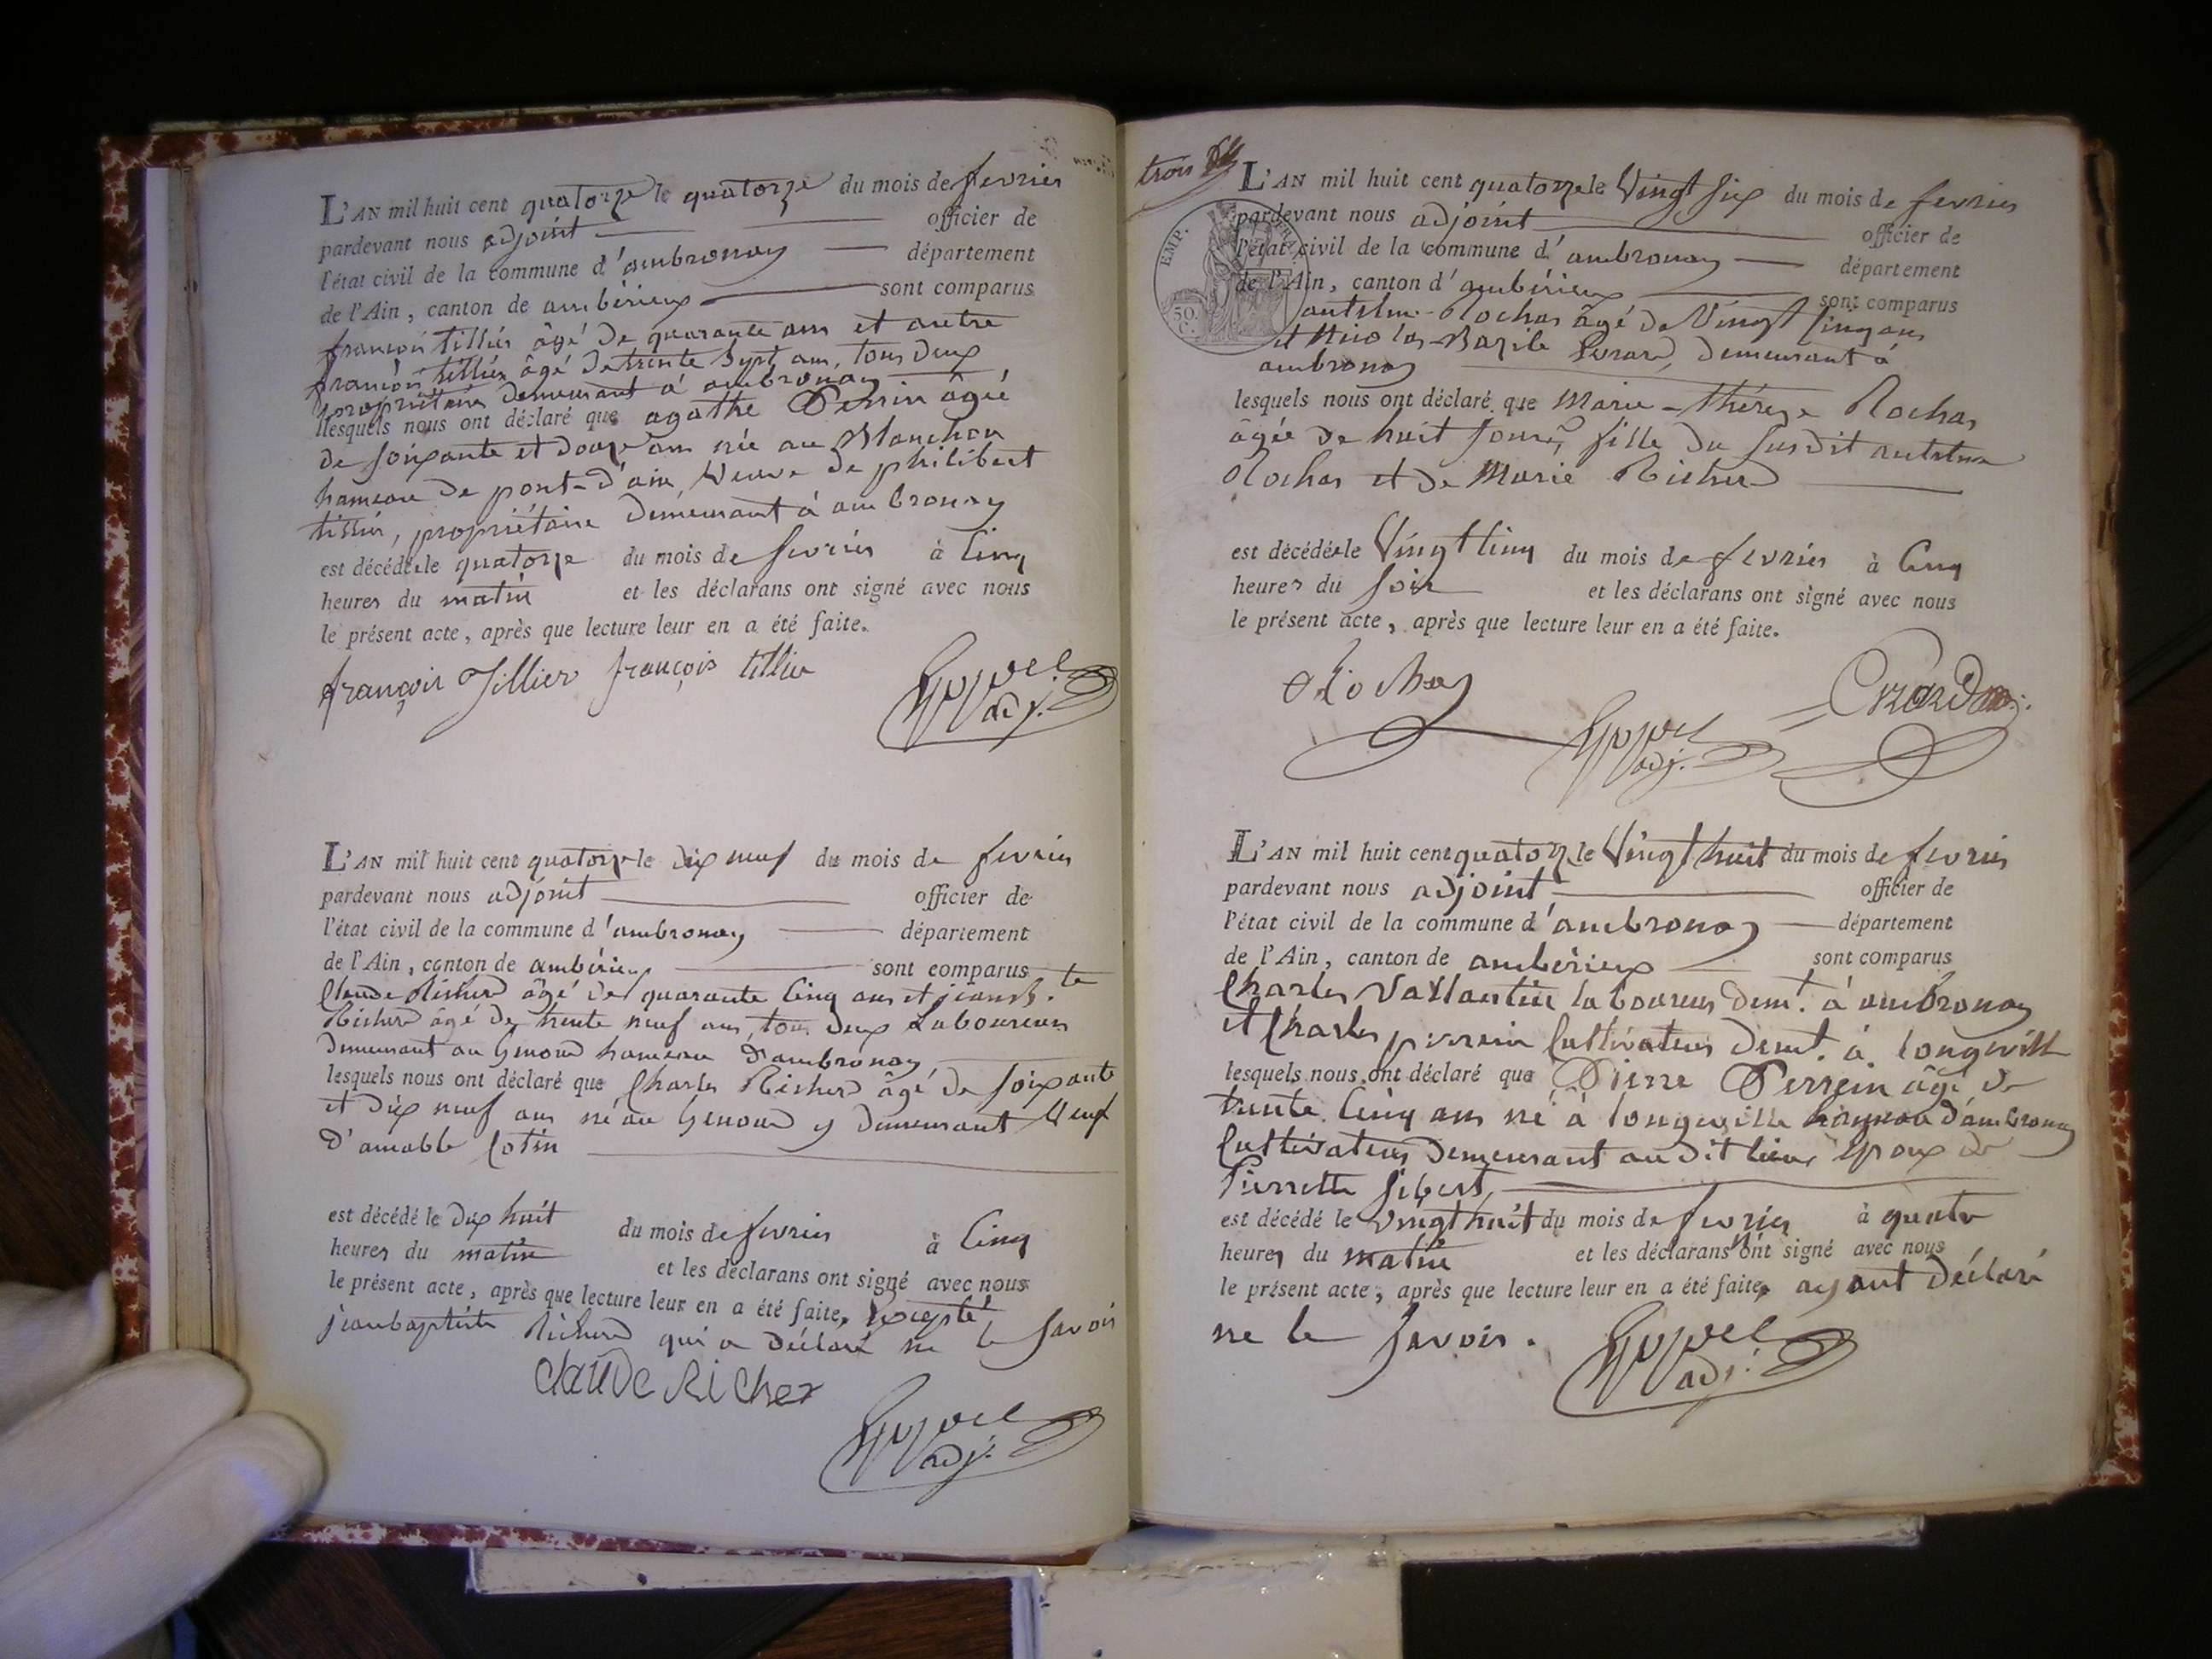 L'AN mil huit cent quatorze le quatorze du mois de fevrier
pardevant nous adjoint officier de
l'état civil de la commune d'ambronay département
de l'Ain, canton de ambérieux sont comparus
françois tillier âgé de quarante ans et autre
françois tillier âgé de trente sept ans, tous deux
propriétaires demeurant à ambronay
lesquels nous ont déclaré que agathe Perrin âgée
de soixante et douze ans née au Blanchon
hameau de pont-d'ain, Veuve de philibert
tillier, propriétaire demeurant à ambronay
est décédée le quatorze du mois de fevrier à Cinq
heures du matin et les déclarans ont signé avec nous
le présent acte, après que lecture leur en a été faite.
françois Tillier françois tillier
adj.
L'AN mil huit cent quatorze le dix neuf du mois de fevrier
pardevant nous adjoint officier de
l'état civil de la commune d'ambronay département
de l'Ain, canton de ambérieux sont comparus
Claude Richerd âgé de quarante Cinq ans et jean b.te
Richerd âgé de trente neuf ans, tous deux Laboureurs
demeurant au Genoud hameau d'ambronay
lesquels nous ont déclaré que Charles Richerd âgé de soixante
et dix neuf ans né au Genoud y demeurant Veuf
d'amable Cotin
est décédé le dix huit du mois de fevrier à Cinq
heures du matin et les déclarans ont signé avec nous
le présent acte, après que lecture leur en a été faite, Excepté
jean baptiste Richerd qui a déclaré ne le savoir
claude Richer
adj.
trois
EMP. FRA.
50. C.
L'AN mil huit cent quatorze le Vingt six du mois de fevrier
pardevant nous adjoint officier de
l'état civil de la commune d'ambronay département
de l'Ain, canton d'ambérieux sont comparus
antelme Rochas âgé de Vingt Cinq ans
et Nicolas Bazile Evrard, demeurant à
ambronay
lesquels nous ont déclaré que Marie-thérèze Rochas
âgée de huit jours, fille du susdit antelme
Rochas et de Marie Richerd
est décédée le Vingt Cinq du mois de fevrier à Cinq
heures du soir et les déclarans ont signé avec nous
le présent acte, après que lecture leur en a été faite.
Rochas
adj.
L'AN mil huit cent quatorze le Vingt huit du mois de fevrier
pardevant nous adjoint officier de
l'état civil de la commune d'ambronay département
de l'Ain, canton de ambérieux sont comparus
Charles Vallantin laboureur dem.t à ambronay
et Charles perrein Cultivateur demt. à longeville
lesquels nous ont déclaré que Pierre Perrein âgé de
trente Cinq ans né à longeville hameau d'ambronay
Cultivateur demeurant au dit lieu, Epoux de
Pierrette Sibert
est décédé le vingt huit du mois de fevrier à quatre
heures du matin et les déclarans n'ont signé avec nous
le présent acte, après que lecture leur en a été faite, ayant déclaré
ne le savoir.
adj.